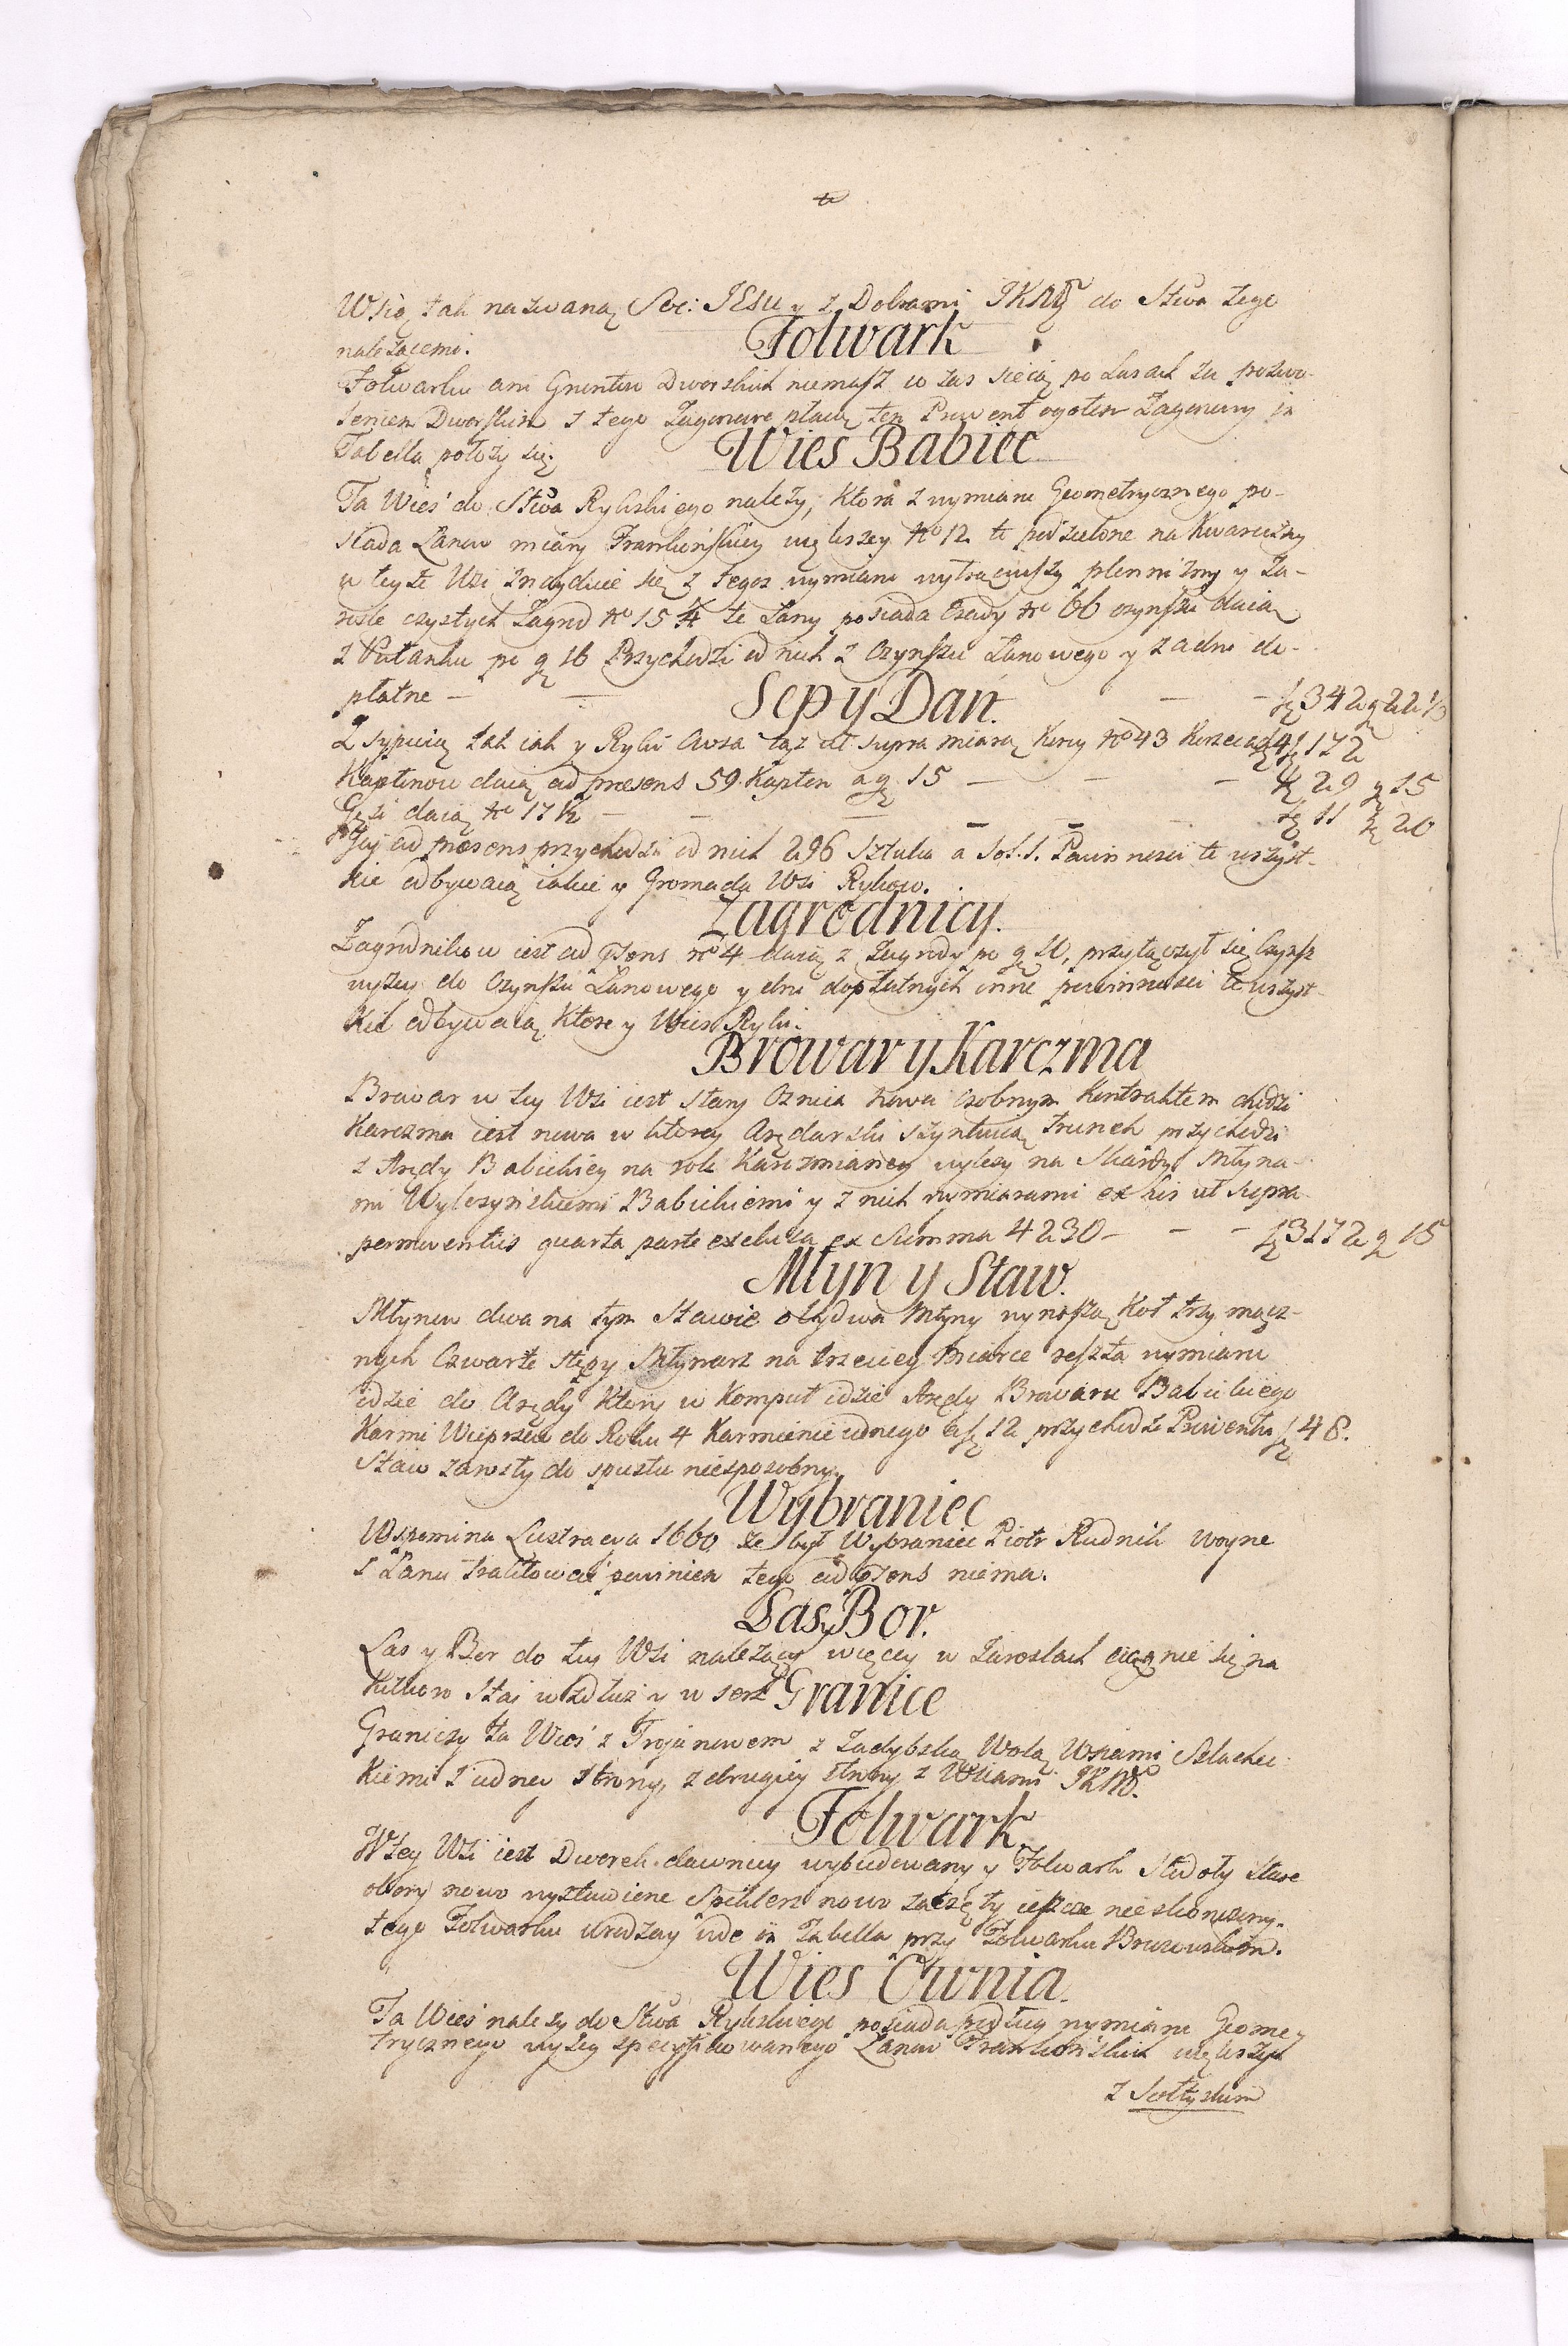 Wsią tak nazwaną Soc: JEsu y z Dobrami JKMci do Stwa tego
należącemi.
Folwark
Folwarku ani Gruntów Dworskich niemasz w zas sieią po Lasach za pozwo-
leniem Dworskim z tego Zagonowe płacą ten Prowent ogołem Zagonowy in
Tabella położy się.
Wies Babice
Ta Wieś do Stwa Ryckiego nalezy, ktora z wymiaru Geometrycznego po-
siada Łanow miary Frankońskiey większey No 12 te podzielone na Kwarciżny
w teyże Wsi znayduie się z tegoż wymiaru wytrąciwszy plenniżny y Za-
rosle czystych Zagrod No 15 ¼ te Łany posiada Osady No 66 czynszu daią
z Pułanku po g 16 Przychodzi od nich z Czynszu Łanowego y z adni do-
płatne — — — f 342 g 22 ⅓
Sep y Dań.
Zsypuią tak iak y Ryki Owsa tąż ut supra miarą Korcy No 43 Korzec a f 4 f 172
Kapłonow daią ad præsens 59. Kapłon a g 15 — — — f 29 g 15
Gęsi daią No 17 ½ — — — f 11 g 20
Jay ad præsens przychodzi od nich 296 sztuka a sol. 1. Powinnosci te wszyst-
kie odbywaią iakie y Gromada Wsi Rykow.
Zagrodnicy.
Zagrodnikow iest ad præsens No 4 daią z Zagrody po g 10, przyłączył się Czynsz
wyżey do Czynszu Łanowego y dni dopłatnych inne powinnosci te wszyst-
kie odbywaią ktore y Wies Ryki.
Browar y Karczma
Browar w tey Wsi iest stary Oznica nowa osobnym Kontraktem chodzi
Karczma iest nowa w ktorey Arędarski szynkuią Trunek przychodzi
z Arędy Babickiey na rok Karczmianey wyłey na Skardy Młyna-
mi Wylezynskiemi Babickiemi y z nich wymiarami ex his ut supra
perwentus quarta parte exclusa ex Summa 4230 — — — f 3172 g 15
Młyn y Staw.
Młynow dwa na tym Stawie obydwa Młyny wynoszą Koł trzy mącz-
nych Czwarte stępy Młynarz na trzeciey Miarce reszta wymiaru
idzie do Arędy ktory w Komput idzie Arędy Browaru Babickiego
Karmi Wieprzow do Roku 4 Karmienie iednego a f 12 przychodzi Prowentu f 48.
Staw zarosły do spustu niesposobny.
Wybraniec
Wspomina Lustracya 1660 że był Wybraniec Piotr Rudnik woyne
z Łanu traktować powinien tego ad præsens niema.
Las y Bor.
Las y Bor do tey Wsi należący więcey w Zaroslach ciągnie się na
kilkoro Staj wzdłuż y w serz
Granice
Graniczy ta Wieś z Trojanowem z Zadybską Wolą Wsiami Szlachec
kiemi z iedney strony, z drugiey strony z Wsiami JKMci.
Folwark
W tey Wsi iest Dworek dawniey wybudowany y Folwark Stodoły stare
obory nowo wystawione Spiklerz nowo zaczęty ieszcze nieskonczony.
tego Folwarku urodzay idzie in Tabella przy Folwarku Brusowskim.
Wies Ownia.
Ta Wieś należy do Stwa Ryckiego posiada podług wymiaru Geome-
trycznego wyżey specyfikowanego Łanow Frankońskich większych
z Sołtyskim